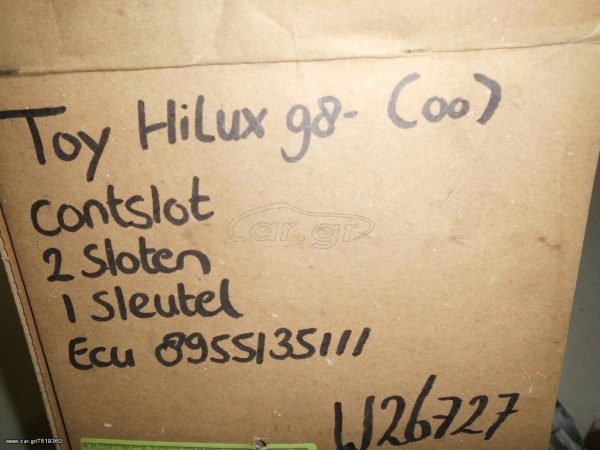 Toy Hilux 98- (00)
contslot
car.gr
2 Sloten
1 Sleutel
Ecu 8955135111
W26727
www.car.gr/7519360